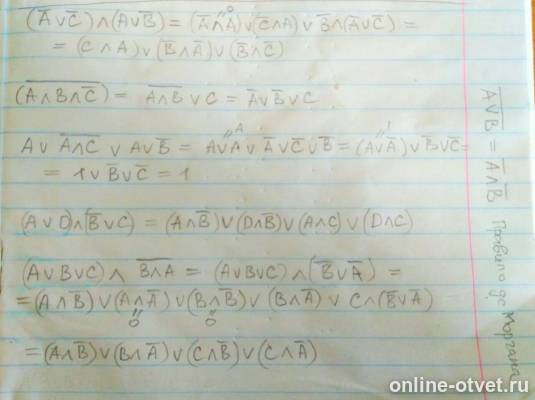 (A̅∨C̅)∧(A∨B̅) = (A̅∧A)∨(C̅∧A)∨B̅∧(A̅∨C̅) =
0
= (C∧A)∨(B̅∧A̅)∨(B̅∧C̅)
(A̅∧̅B̅∧̅C̅) = A̅∧̅B̅∨C = A̅∨B̅∨C
A∨A̅∧̅C̅∨A∨B̅ = A∨A∨A̅∨C̅∨B̅ = (A∨A̅)∨B̅∨C̅ =
A 1
= 1∨B̅∨C̅ = 1
(A∨D)∧(B̅∨C) = (A∧B̅)∨(D∧B̅)∨(A∧C)∨(D∧C)
(A∨B∨C)∧B̅∧̅A̅ = (A∨B∨C)∧(B̅∨A̅) =
= (A∧B̅)∨(A∧A̅)∨(B∧B̅)∨(B∧A̅)∨C∧(B̅∨A̅)
0 0
= (A∧B̅)∨(B∧A̅)∨(C∧B̅)∨(C∧A̅)
A̅∨̅B̅ = A̅∧B̅ Правило де Моргана
online-otvet.ru